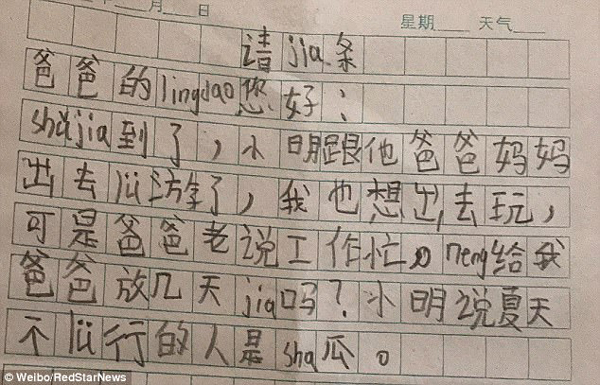 年 月 日 星期 天气
请jia条
爸爸的lingdao您好：
shǔjia到了，小明跟他爸爸妈妈
出去lü游了，我也想出去玩，
可是爸爸老说工作忙。neng给我
爸爸放几天jia吗？小明说夏天
不lü行的人是sha瓜。
© Weibo/RedStarNews